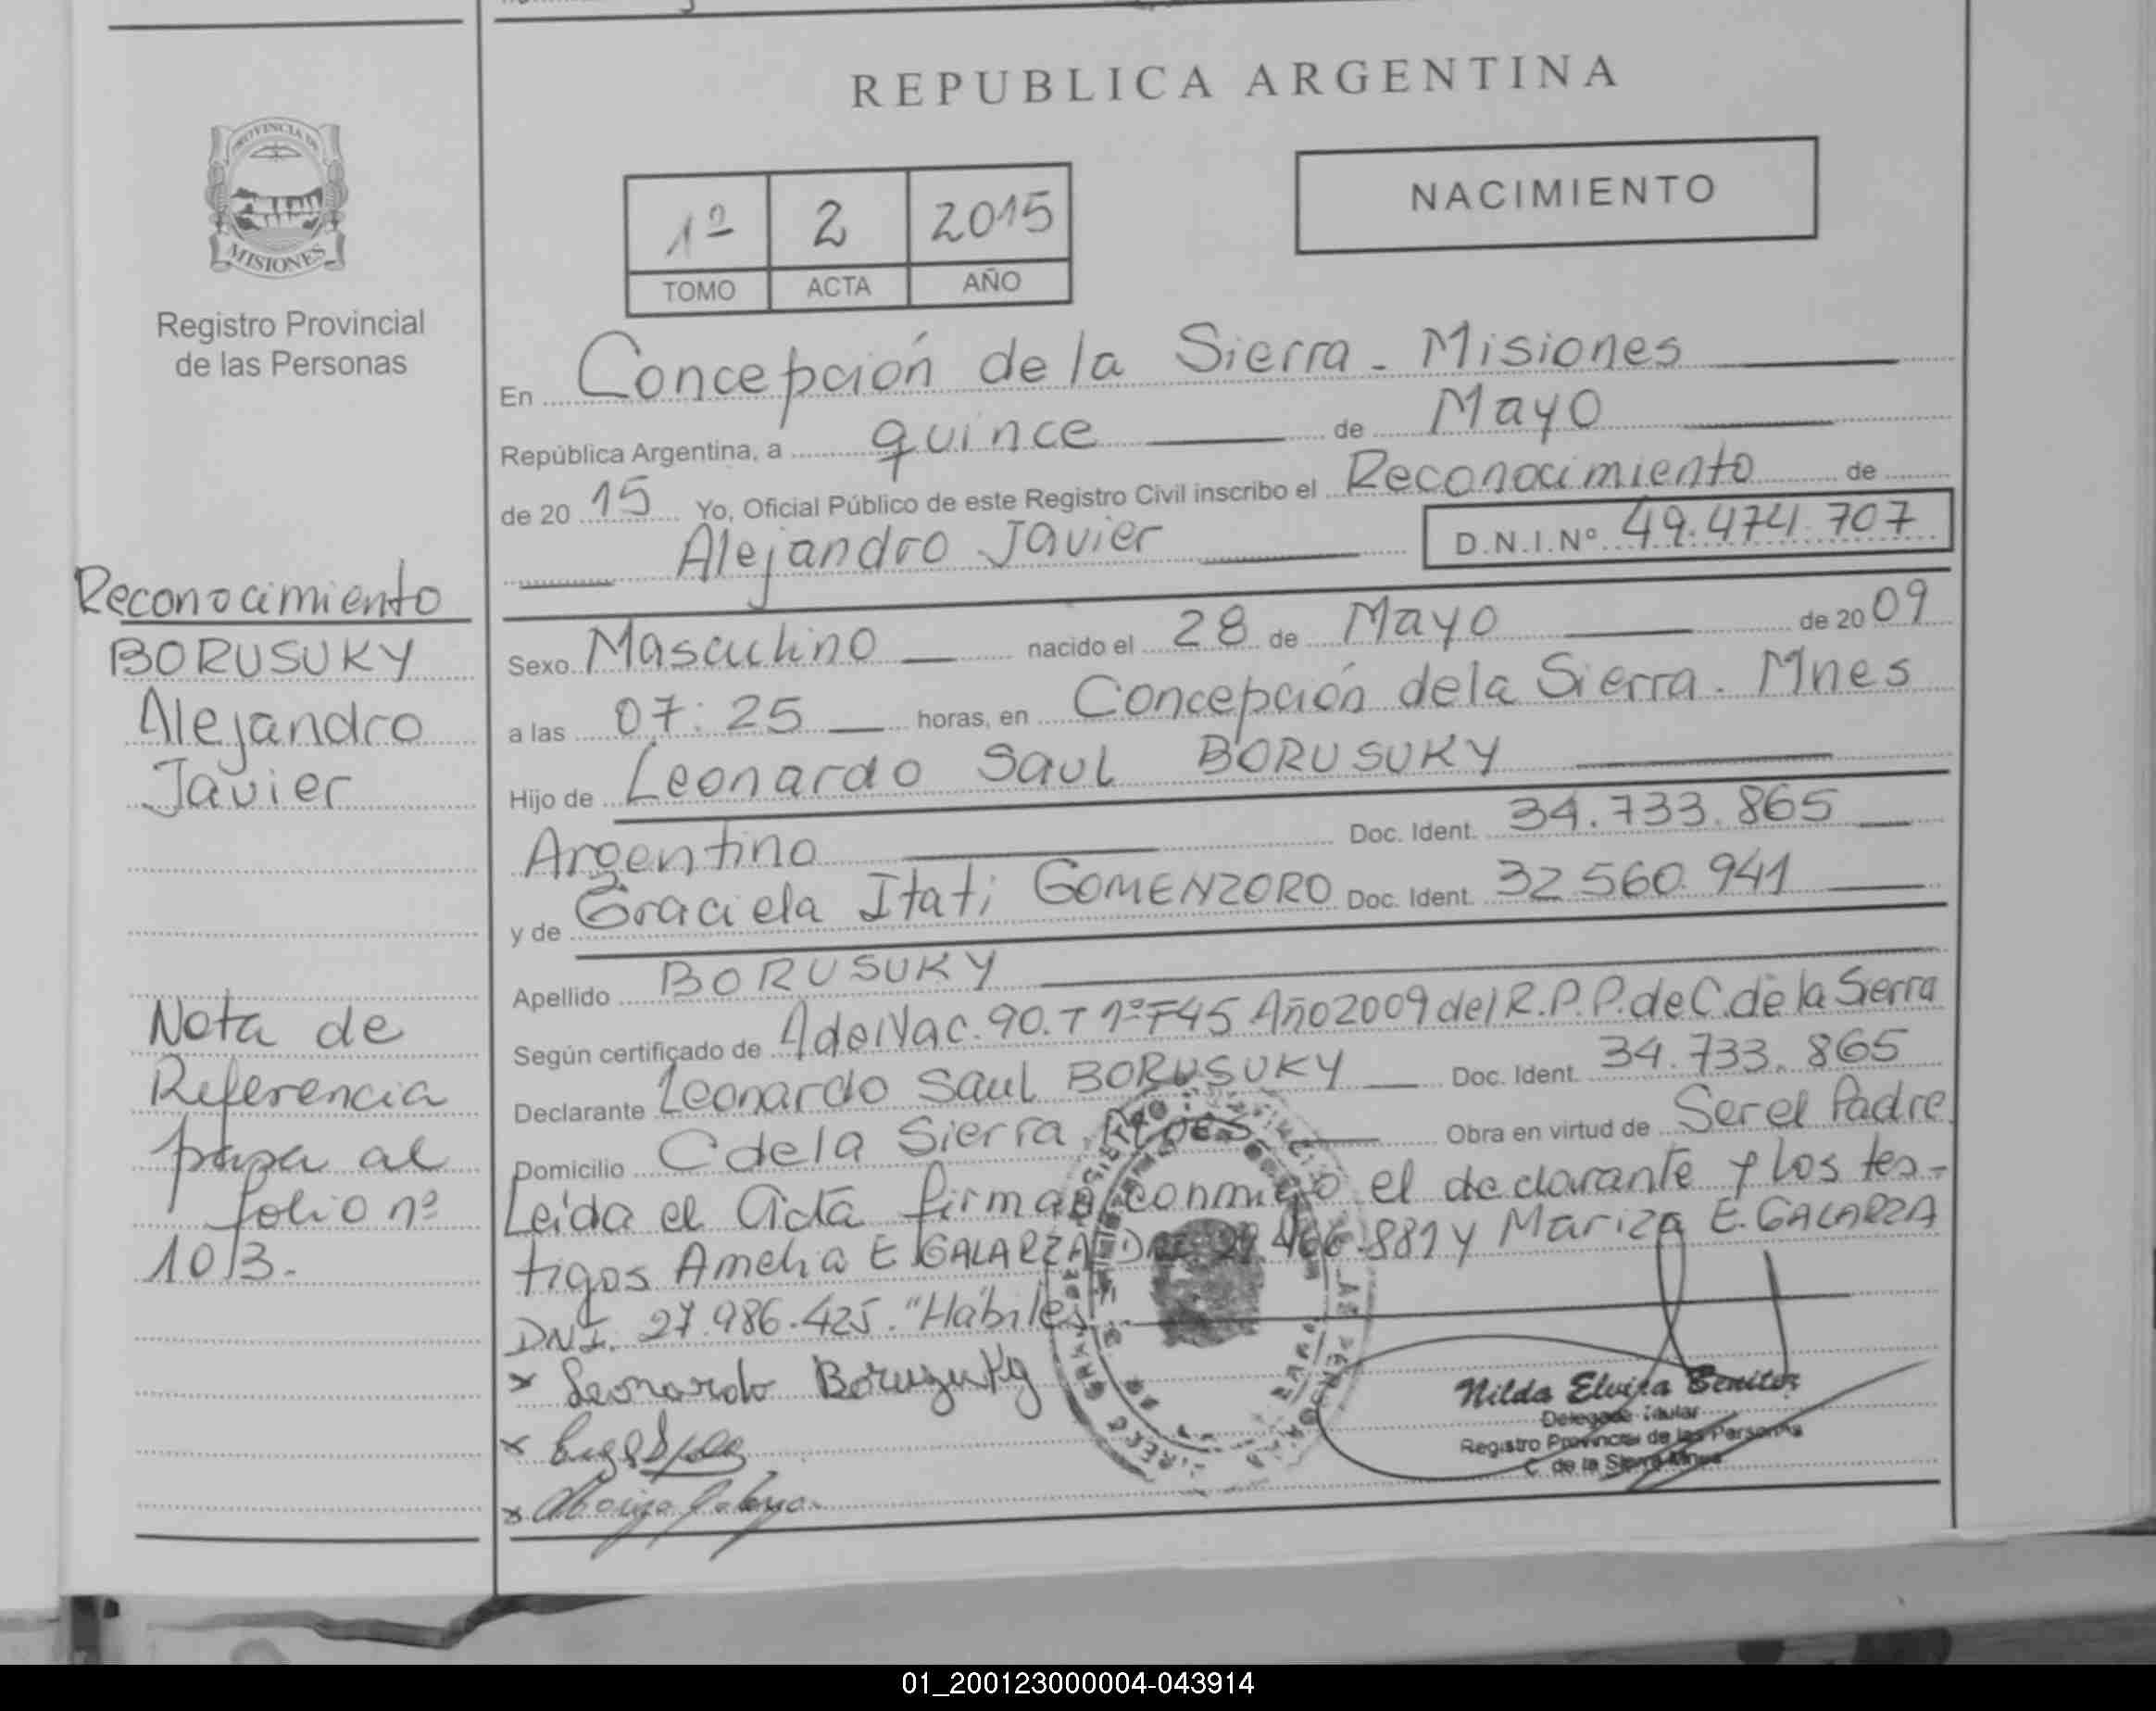 REPUBLICA ARGENTINA
PROVINCIA DE
MISIONES
Registro Provincial
de las Personas
1º 2 2015
TOMO ACTA AÑO
NACIMIENTO
En Concepción de la Sierra - Misiones
República Argentina, a quince de Mayo
de 20 15 Yo, Oficial Público de este Registro Civil inscribo el Reconocimiento de
Alejandro Javier D.N.I.Nº 49.474.707
Sexo Masculino nacido el 28 de Mayo de 20 09
a las 07:25 horas, en Concepción de la Sierra - Mnes
Hijo de Leonardo Saul BORUSUKY
Argentino Doc. Ident. 34.733.865
y de Graciela Itati GOMENZORO Doc. Ident. 32.560.941
Apellido BORUSUKY
Según certificado de A de Nac. 90. T 1º F45 Año 2009 del R.P.P. de C. de la Sierra
Declarante Leonardo Saul BORUSUKY Doc. Ident. 34.733.865
Domicilio C de la Sierra Obra en virtud de Ser el Padre
Leida el acta firman conmigo el declarante y los tes-
tigos Amelia E GALARZA 881 y Mariza E. GALARZA
DNI. 27.986.425. "Hábiles
x Leonardo Boruzuky
x
x
Nilda Elvira Benitez
Delegada Titular
Registro Provincial de las Personas
C. de la Sierra Mnes
Reconocimiento
BORUSUKY
Alejandro
Javier
Nota de
Referencia
pasa al
folio nº
103.
01_200123000004-043914